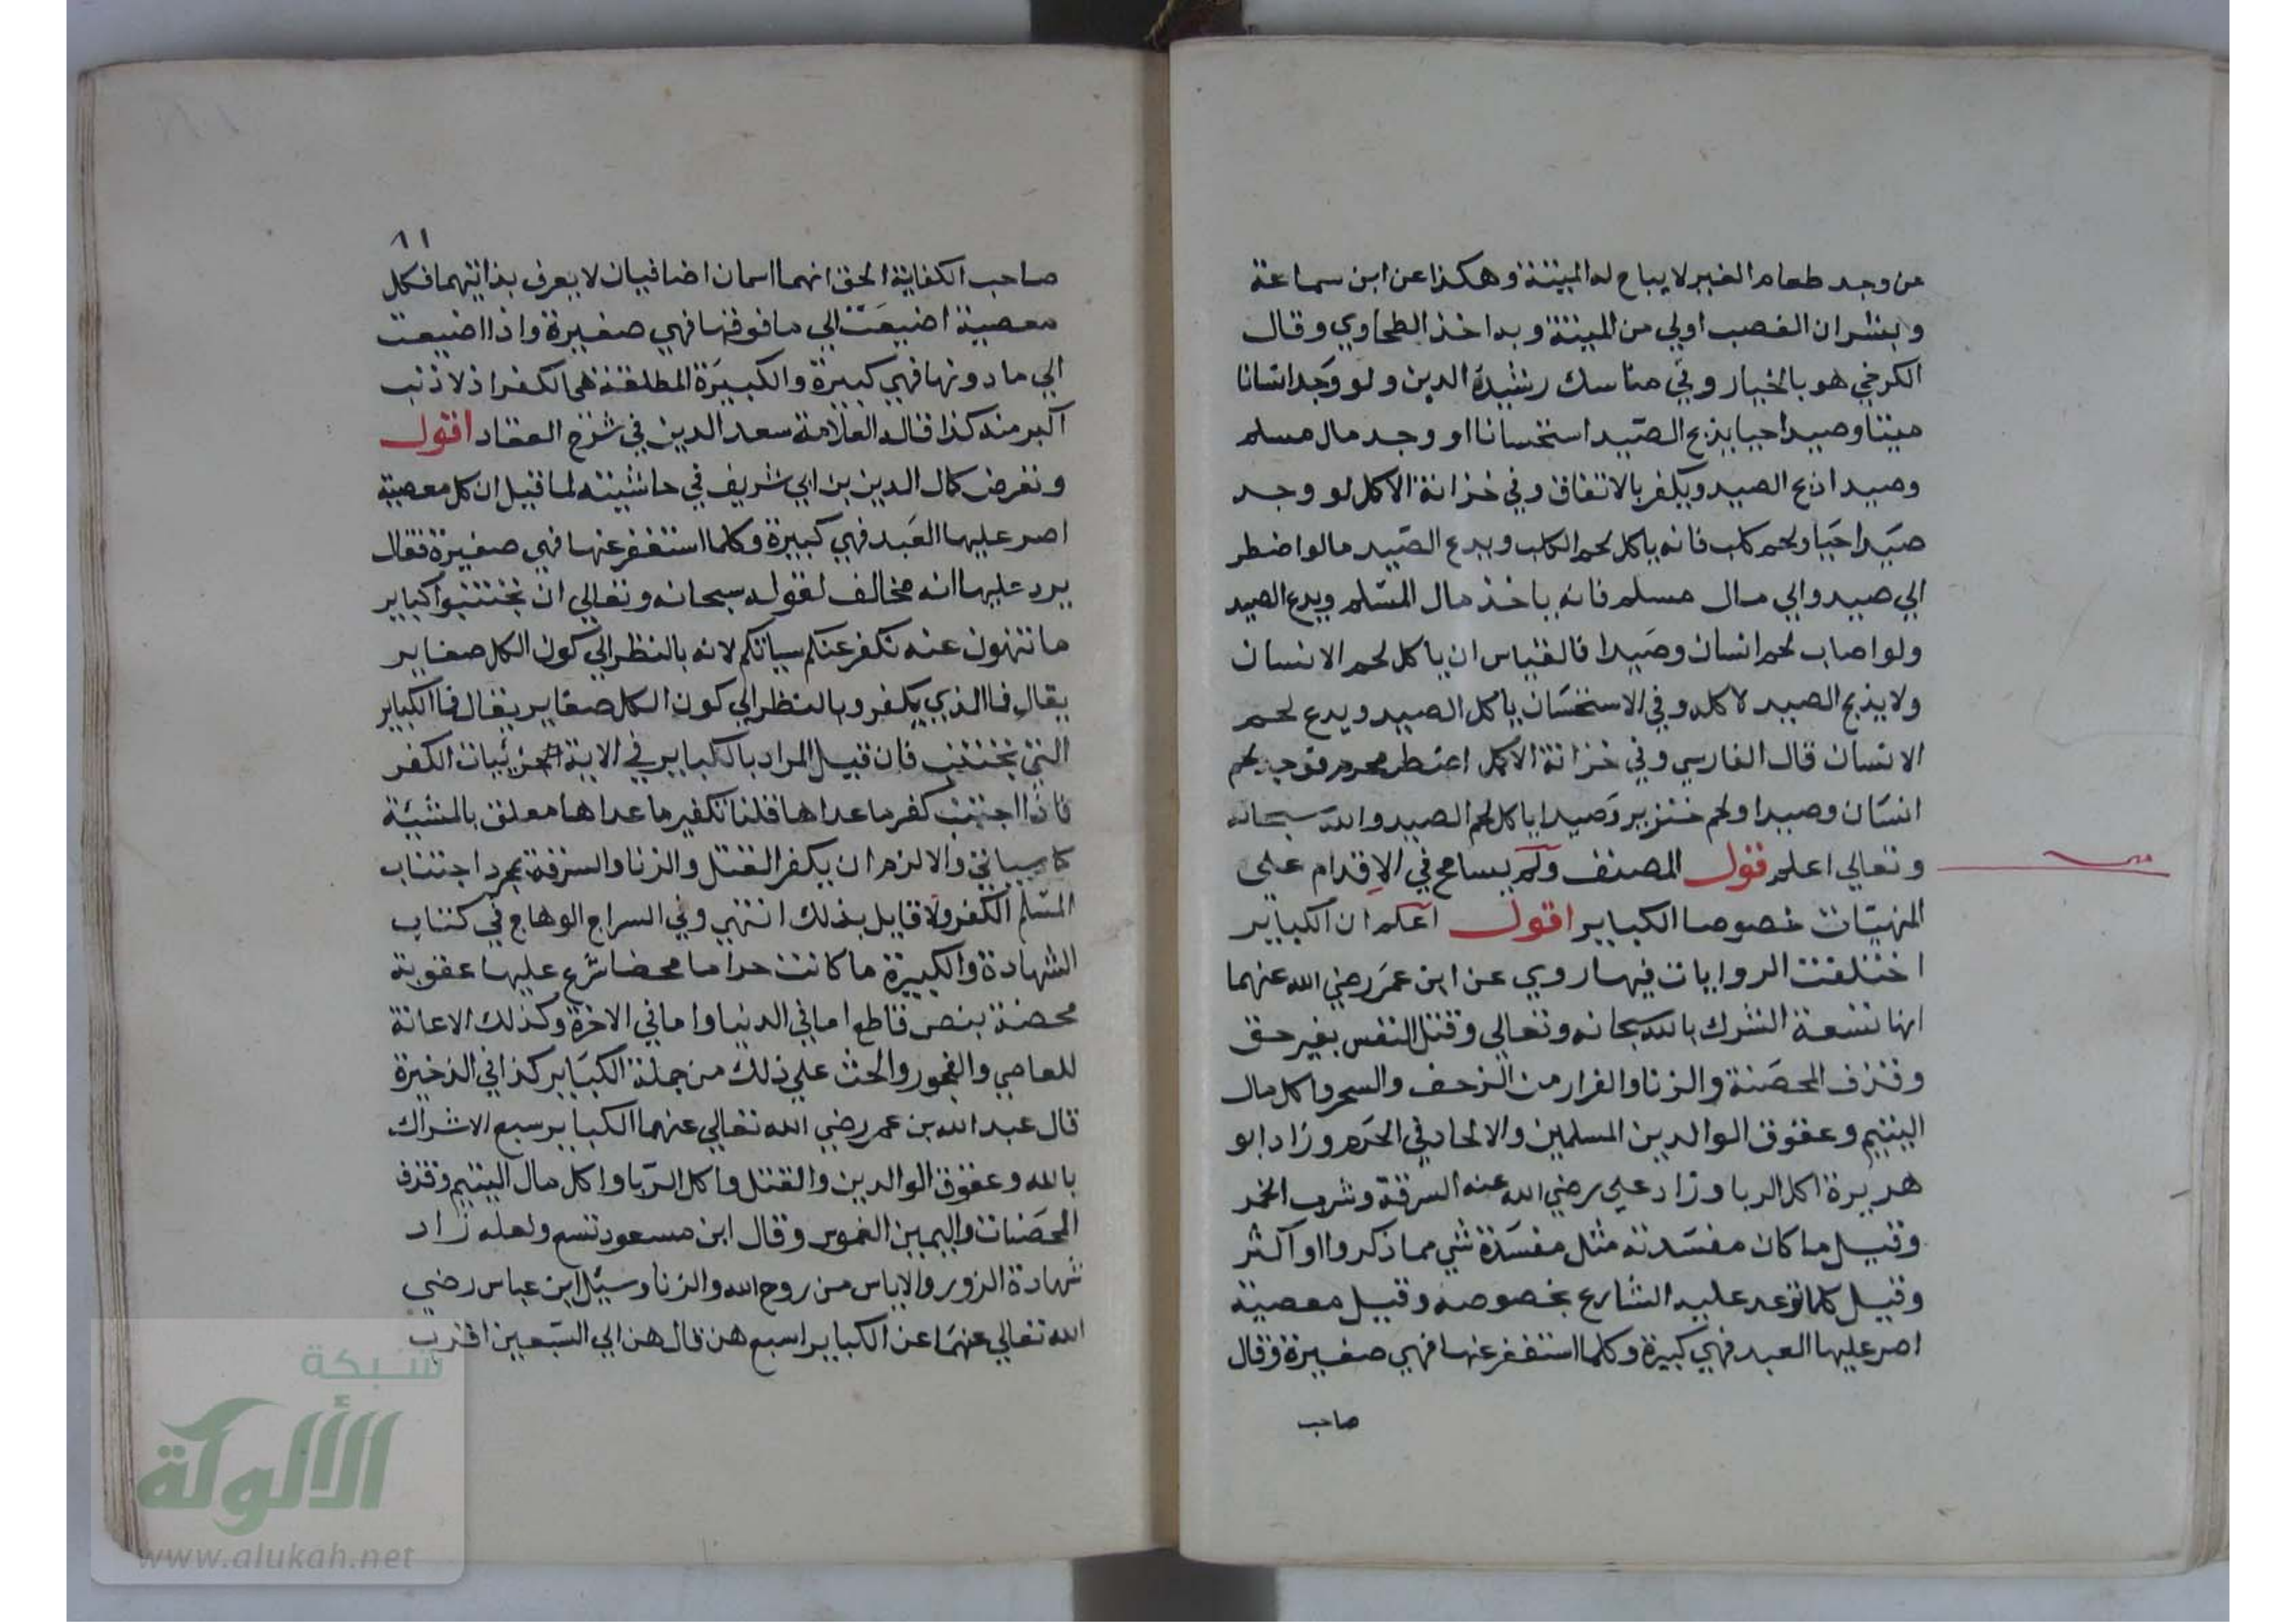 من وجد طعام الغير لا يباح له الميتة وهكذا عن ابن سماعة
وبشر ان الغصب اولي من الميتة وبه اخذ الطحاوي وقال
الكرخي هو بالخيار وفي مناسك رشيد الدين ولو وجد انسانا
ميتا وصيدا حيا يذبح الصيد استحسانا او وجد مال مسلم
وصيدا ذبح الصيد ويكفر بالاتفاق وفي خزانة الاكل لو وجد
صيدا حيا ولحم كلب فانه ياكل لحم الكلب ويدع الصيد مالو اضطر
الي صيد والي مال مسلم فانه ياخذ مال المسلم ويدع الصيد
ولو اصاب لحم انسان وصيدا فالقياس ان ياكل لحم الانسان
ولا يذبح الصيد لاكله وفي الاستحسان ياكل الصيد ويدع لحم
الانسان قال الفارسي وفي خزانة الاكمل اضطر محرم فوجد لحم
انسان وصيدا ولحم خنزير وصيدا ياكل لحم الصيد والله سبحانه
وتعالي اعلم قول المصنف ولم يسامح في الاقدام علي
المنهيات خصوصا الكباير اقول اعلم ان الكباير
اختلفت الروايات فيها روي عن ابن عمر رضي الله عنهما
انها تسعة الشرك بالله سبحانه وتعالي وقتل النفس بغير حق
وقذف المحصنة والزنا والفرار من الزحف والسحر واكل مال
اليتيم وعقوق الوالدين المسلمين والالحاد في الحرم وزاد ابو
هريرة اكل الربا وزاد علي رضي الله عنه السرقة وشرب الخمر
وقيل ما كان مفسدته مثل مفسدة شي مما ذكروا او اكثر
وقيل كلما توعد عليه الشارع بخصوصه وقيل معصية
اصر عليها العبد فهي كبيرة وكلما استغفر عنها فهي صغيرة وقال
صاحب
٨١
صاحب الكفاية الحق انهما اسمان اضافيان لا يعرف بذاتيهما فكل
معصية اضيعت الي ما فوقها فهي صغيرة واذا اضيعت
الي ما دونها فهي كبيرة والكبيرة المطلقة هي الكفر اذ لا ذنب
اكبر منه كذا قاله العلامة سعد الدين في شرح العقاد اقول
وتعرض كمال الدين بن ابي شريف في حاشيته لما قيل ان كل معصية
اصر عليها العبد فهي كبيرة وكلما استغفر عنها فهي صغيرة فقال
يرد عليها انه مخالف لقوله سبحانه وتعالي ان تجتنبوا كباير
ما تنهون عنه نكفر عنكم سياتكم لانه بالنظر الي كون الكل صغاير
يقال فما الذي يكفر وبالنظر الي كون الكل صغاير يقال فما الكباير
التي تجتنب فان قيل المراد بالكباير في الاية جزئيات الكفر
فاذا اجتنبت كفر ما عداها قلنا تكفير ما عداها معلق بالمشيئة
كما سياتي والا لزم ان يكفر القتل والزنا والسرقة بمجرد اجتناب
المسلم الكفر ولا قايل بذلك انتهي وفي السراج الوهاج في كتاب
الشهادة والكبيرة ما كانت حراما محضا شرع عليها عقوبة
محضة بنص قاطع اما في الدنيا واما في الاخرة وكذلك الاعانة
للعاصي والفجور والحث علي ذلك من جملة الكباير كذا في الذخيرة
قال عبد الله بن عمر رضي الله تعالي عنهما الكباير سبع الاشراك
بالله وعقوق الوالدين والقتل واكل الربا واكل مال اليتيم وقذف
المحصنات واليمين الغموس وقال ابن مسعود تسع ولعله زاد
شهادة الزور والاياس من روح الله والزنا وسيل ابن عباس رضي
الله تعالي عنهما عن الكباير اسبع هن قال هن الي السبعين اقرب
شبكة
الألوكة
www.alukah.net